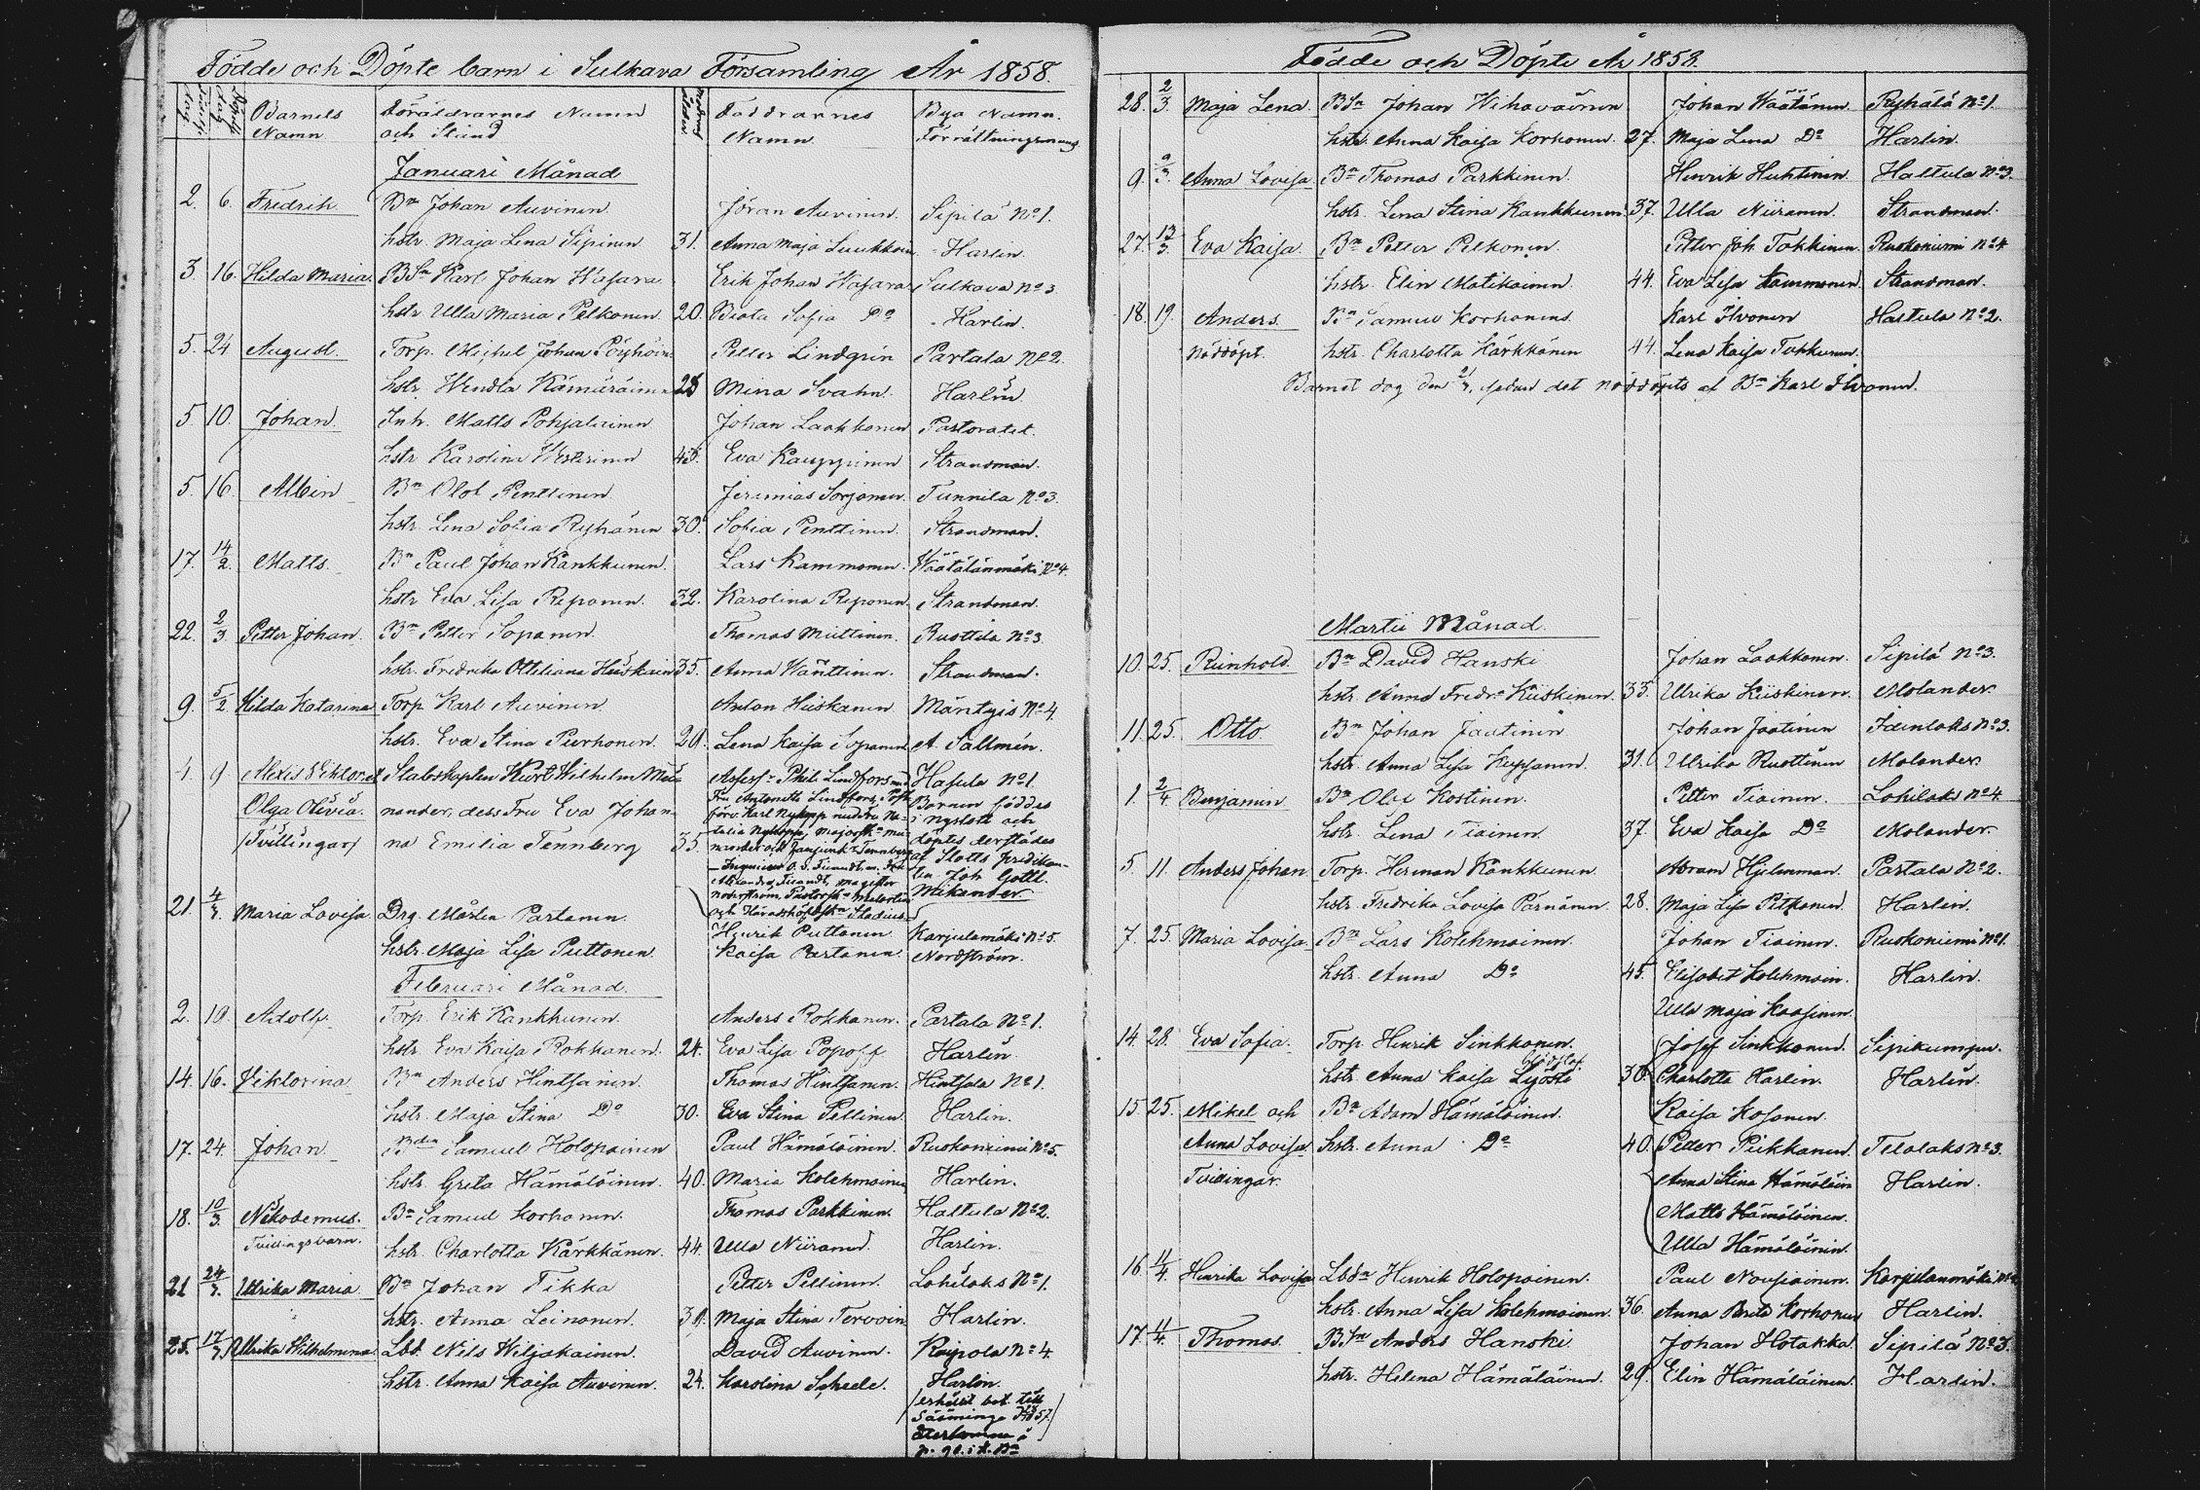 Födde och Döpte barn i Sulkava Församling År 1858.
Barnets Namn Föräldrarnes Namn och Stånd Faddrarnes Namn Bya Namn. Förrättningsmans
Januari Månad
2. 6. Fredrik Bn Johan Auvinen. Jöran Auvinen. Sipilä No 1.
hstr Maja Lena Sipinen 31. Anna Maja Luukkoin Harlin.
3 16. Hilda Maria. BSn Karl Johan Wasara Erik Johan Wasara Sulkava No 3
hstr Ulla Maria Pelkonen. 20. Biata Sofia Do Harlin.
5. 24 August. Torp. Michel Johan Pöyhöin Petter Lindgrén Partala No 2.
hstr. Wendla Kämäräinen 28 Mina Svahn. Harlin
5 10. Johan. Inh. Matts Pohjalainen Johan Laakkonen Pastoratet.
hstr Karolina Eva Kauppinen Strandman.
5. 16. Albin Bn Olof Penttinen Jeremias Sorjonen. Tunnila No 3.
hstr. Lena Sofia Ryhänen 30. Sofia Penttinen. Strandman.
17. 14/2. Matts. Bn Paul Johan Kankkunen. Lars Kammonen. Väätälänmäki No 4.
hstr Eva Lisa Reponen. 32. Karolina Reponen. Strandman.
22. 2/3 Petter Johan. Bn Petter Sopanen. Thomas Miettinen. Ruottila No 3
hstr. Fredrika Ottiliana Heiskain 35. Anna Wänttinen. Strandman.
9. 5/2. Hilda Katarina Torp Karl Auvinen Anton Hiiskanen Mäntyis No 4.
hstr. Eva Stina Purhonen. 29. Lena Kaisa Sopanen A. Sallmén.
4 9 Alexis Viktor et Stabskapten Kurt Wilhelm Mu Assess: Phil. Lindfors med Hasula No 1.
Olga Olivia. nander, dess Fru Eva Johan Fru Antonette Lindfors, Post Barnen föddes
förv. Karl Nykopp med Fru Na i Nyslott och
(Tvillingar) na Emilia Tennberg 35. talia Nykopp, döptes derstädes
af Slotts Predikan
Ingenieur ten Joh. Gottl.
Alexandra Magister Mikander
21. 4/3. Maria Lovisa Drg. Mårten Partanen. och
Henrik Puttonen Karjulamäki No 5.
hstr. Maja Lisa Puttonen. Kaisa Partanen Nordström.
Februari Månad.
2. 19. Adolf. Torp. Erik Kankkunen. Anders Rokkanen. Partala No 1.
hstr. Eva Kaisa Rokkanen. 24. Eva Lisa Popoff Harlin.
14. 16. Viktorina Bn Anders Hintsanen. Thomas Hintsanen. Hintsala No 1.
hstr. Maja Stina Do 30. Eva Stina Pellinen Harlin.
17. 24. Johan Samuel Holopainen Paul Hämäläinen. Ruokoniemi No 5.
hstr. Greta Hämäläinen. 40. Maria Kolehmainen Harlin.
18. 10/3. Nikodemus. Bn Samuel Korhonen. Thomas Parkkinen. Haltula No 2.
Tvillingsbarn. hstr. Charlotta Kärkkänen. 44. Ulla Niiranen. Harlin.
21 24/3. Ulrika Maria. Bn Johan Tikka Petter Pellinen. Lohilaks No 1.
hstr. Anna Leinonen. 39. Maja Stina Tervoin Harlin.
25. 17/3. Ulrika Wilhelmina Lbd. Nils Wiljakainen. David Auvinen. Kaipola No 4.
hstr. Anna Kaisa Auvinen. 24. Karolina Scheele. Harlin.
(erhållit bet. till
Sääminge
Återkomna
Födde och Döpte År 1858.
28. 2/3. Maja Lena. BSn Johan Hihavainen Johan Väätänen Ryhälä No 1.
hstr. Anna Kaisa Korhonen. 27. Maja Lena Do Harlin.
9. 9/3. Anna Lovisa. Bn Thomas Parkkinen. Henrik Huhtinen. Haltula No 3.
hstr. Lena Stina Kankkunen. 37. Ulla Niiranen. Strandman.
27. 13/3. Eva Kaisa. Bn Petter Pelkonen. Petter Joh. Tokkinen. Ruokoniemi No 4
hstr. Elin Matikainen. 44. Eva Lisa Kammonen. Strandman.
18. 19. Anders. Bn Samuel Korhonens Karl Ihvonen Haltula No 2.
Nöddöpt. hstr. Charlotta Kärkkänen 44. Lena Kaisa Tukkunen.
Barnet dog den sedan det nöddöpts af Bn Karl Ihvonen.
Martii Månad.
10. 25. Reinhold. Bn David Hanski Johan Laakkonen. Sipilä No 3.
hstr. Anna Fredr. Kiiskinen. 33. Ulrika Kiiskinen. Molander.
11. 25. Otto Bn Johan Jaatinen Johan Jaatinen Idenlaks No 3.
hstr. Anna Lisa Kuppanen. 31. Ulrika Ruottinen Molander.
1. 2/4 Benjamin Bn Olof Kostinen. Petter Tiainen. Lohilaks No 4.
hstr. Lena Tiainen 37. Eva Kaisa Do Molander.
5 11. Anders Johan Torp. Herman Kankkunen. Abram Hjelmman. Partala No 2.
hstr. Fredrika Lovisa Parnänen. 28. Maja Lisa Pitkonen. Harlin.
7. 25. Maria Lovisa Bn Lars Kolehmainen. Johan Tiainen. Ruokoniemi No 1.
hstr. Anna Do 45. Elisabet Kolehmain. Harlin.
Ulla Maja Kaasinen.
14. 28. Eva Sofia. Torp. Henrik Sinkkonen. Josef Sinkkonen. Sipikumpu.
hstr. Anna Kaisa 30. Charlotta Harlin. Harlin.
Kaisa Kosonen.
15 25. Mikel och Bn Adam Hämäläinen.
Anna Lovisa hstr. Anna Do 40. Petter Pirkkanen. Telalaks No 3.
Tvillingar. Anna Stina Hämäläin Harlin.
Matts Hämäläinen.
Ulla Hämäläinen.
16. 11/4. Henrika Lovisa Lbdn Henrik Holopainen. Paul Nousiainen. Karjulanmäki
hstr. Anna Lisa Kolehmainen. 36. Anna Brita Korhonen Harlin.
17. 11/4. Thomas. BSn Anders Hanski Johan Hotakka. Sipilä No 3.
hstr. Helena Hämäläinen. 29. Elin Hämäläinen. Harlin.